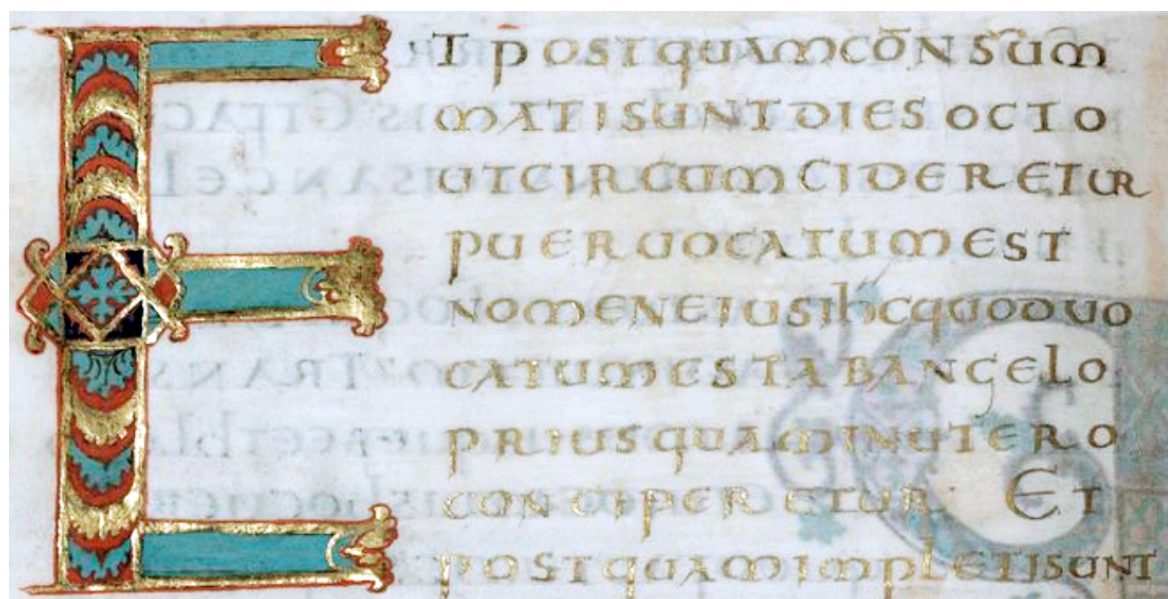 ET postquam cōnsum
mati sunt dies octo
ut circumcideretur
puer uocatum est
nomen eius ihc quod uo
catum est ab angelo
priusquam in utero
conciperetur. Et
postquam impleti sunt